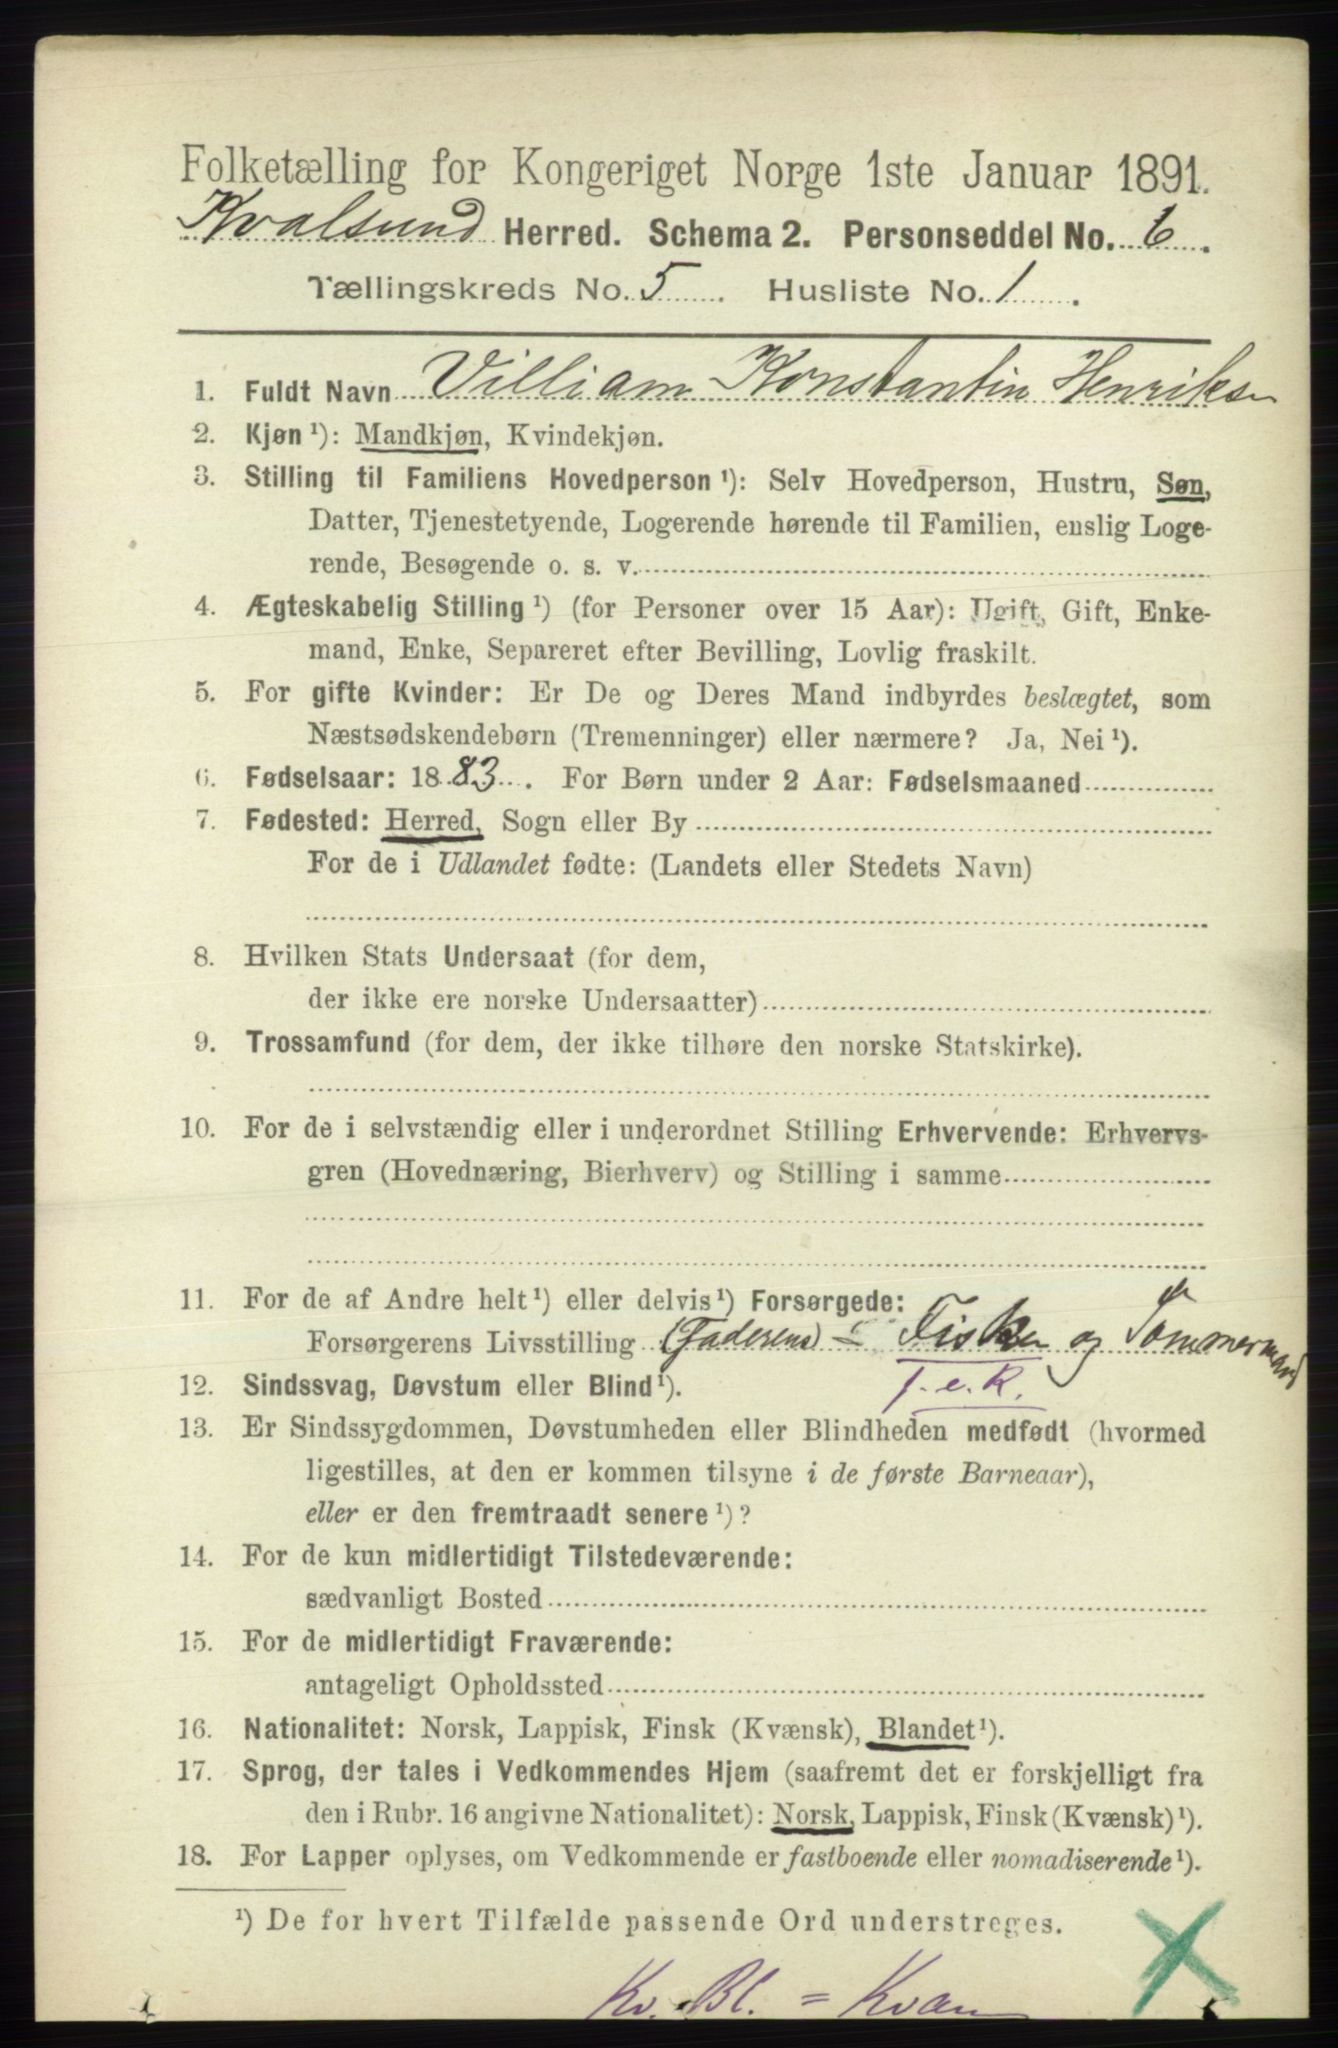 Folketælling for Kongeriget Norge 1ste Januar 1891.
Kvalsund Herred. Schema 2. Personseddel No. 6.
Tællingskreds No. 5. Husliste No. 1.
1. Fuldt Navn Villiam Konstantin Henriksen
2. Kjøn ¹): Mandkjøn, Kvindekjøn.
3. Stilling til Familiens Hovedperson ¹): Selv Hovedperson, Hustru, Søn,
Datter, Tjenestetyende, Logerende hørende til Familien, enslig Loge-
rende, Besøgende o. s. v.
4. Ægteskabelig Stilling ¹) (for Personer over 15 Aar): Ugift, Gift, Enke-
mand, Enke, Separeret efter Bevilling, Lovlig fraskilt.
5. For gifte Kvinder: Er De og Deres Mand indbyrdes beslægtet, som
Næstsødskendebørn (Tremenninger) eller nærmere? Ja, Nei ¹).
6. Fødselsaar: 1883. For Børn under 2 Aar: Fødselsmaaned
7. Fødested: Herred, Sogn eller By
For de i Udlandet fødte: (Landets eller Stedets Navn)
8. Hvilken Stats Undersaat (for dem,
der ikke ere norske Undersaatter)
9. Trossamfund (for dem, der ikke tilhøre den norske Statskirke).
10. For de i selvstændig eller i underordnet Stilling Erhvervende: Erhvervs-
gren (Hovednæring, Bierhverv) og Stilling i samme
11. For de af Andre helt ¹) eller delvis ¹) Forsørgede:
Forsørgerens Livsstilling (Faderens) = Fisker og Tømmermand
12. Sindssvag, Døvstum eller Blind ¹). F. e. R.
13. Er Sindssygdommen, Døvstumheden eller Blindheden medfødt (hvormed
ligestilles, at den er kommen tilsyne i de første Barneaar),
eller er den fremtraadt senere ¹)?
14. For de kun midlertidigt Tilstedeværende:
sædvanligt Bosted
15. For de midlertidigt Fraværende:
antageligt Opholdssted
16. Nationalitet: Norsk, Lappisk, Finsk (Kvænsk), Blandet ¹).
17. Sprog, der tales i Vedkommendes Hjem (saafremt det er forskjelligt fra
den i Rubr. 16 angivne Nationalitet): Norsk, Lappisk, Finsk (Kvænsk) ¹).
18. For Lapper oplyses, om Vedkommende er fastboende eller nomadiserende ¹).
¹) De for hvert Tilfælde passende Ord understreges.
Kv. Bl. = Kvæn